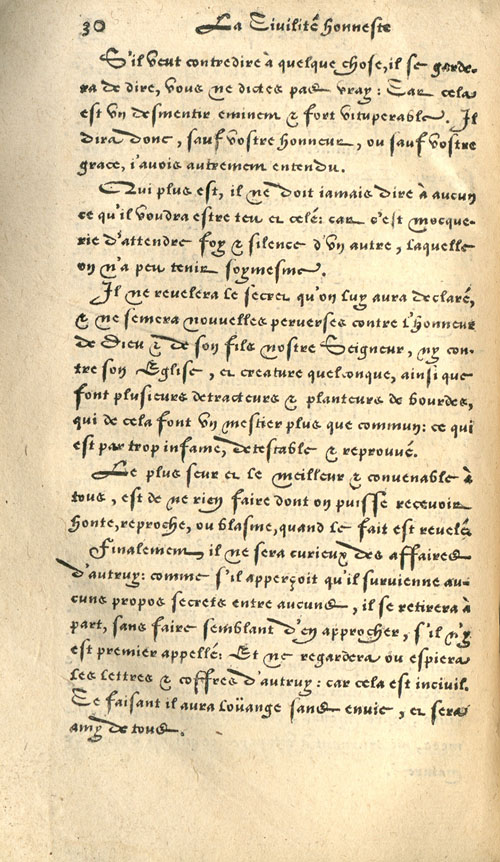 30 La Civilité honneste
S'il veut contredire à quelque chose, il se garde-
ra de dire, vous ne dictes pas vray: Car cela
est vn desmentir eminent & fort vituperable. Il
dira donc, sauf vostre honneur, ou sauf vostre
grace, i'auois autrement entendu.
Qui plus est, il ne doit iamais dire à aucun
ce qu'il voudra estre teu et celé: car c'est mocque-
rie d'attendre foy & silence d'vn autre, laquelle
on n'a peu tenir soymesme.
Il ne reuelera le secret qu'on luy aura declaré,
& ne semera nouuelles peruerses contre l'honneur
de Dieu & de son fils nostre Seigneur, ny con-
tre son Eglise, et creature quelconque, ainsi que
font plusieurs detracteurs & planteurs de bourdes,
qui de cela font vn mestier plus que commun: ce qui
est par trop infame, detestable & reprouué.
Le plus seur et le meilleur & conuenable à
tous, est de ne rien faire dont on puisse receuoir
honte, reproche, ou blasme, quand le fait est reuelé.
Finalement, il ne sera curieux des affaires
d'autruy: comme s'il apperçoit qu'il suruienne au-
cuns propos secrets entre aucuns, il se retirera à
part, sans faire semblant d'en approcher, s'il n'y
est premier appellé: Et ne regardera ou espiera
les lettres & coffres d'autruy: car cela est inciuil.
Ce faisant il aura loüange sans enuie, et sera
amy de tous.